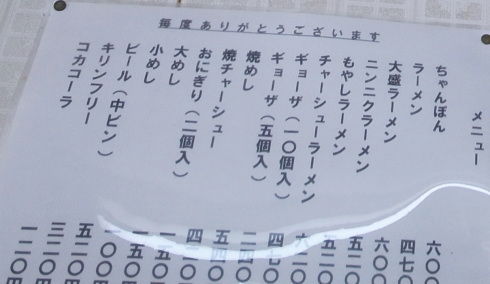 毎度ありがとうございます
メニュー
ちゃんぽん 六〇〇
ラーメン 四七〇
大盛ラーメン 六〇〇
ニンニクラーメン 五二〇
もやしラーメン 五二〇
チャーシューラーメン 六二〇
ギョーザ（一〇個入） 四七〇
ギョーザ（五個入） 二四〇
焼めし 五四〇
焼チャーシュー 四二〇
おにぎり（二個入） 一五〇
大めし 一五〇
小めし 一〇〇
ビール（中ビン） 五二〇
キリンフリー 三二〇
コカコーラ 一二〇円